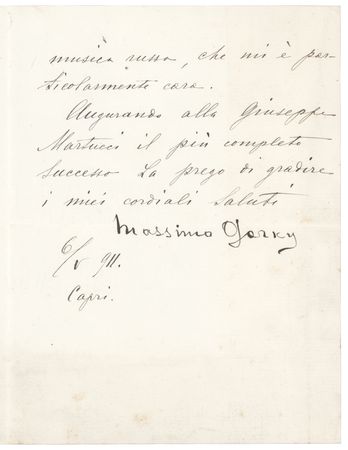 musica russa, che mi è par-
ticolarmente cara.
Augurando alla Giuseppe
Martucci il più completo
successo La prego di gradire
i miei cordiali saluti
Massimo Gorky
6/V 911.
Capri.